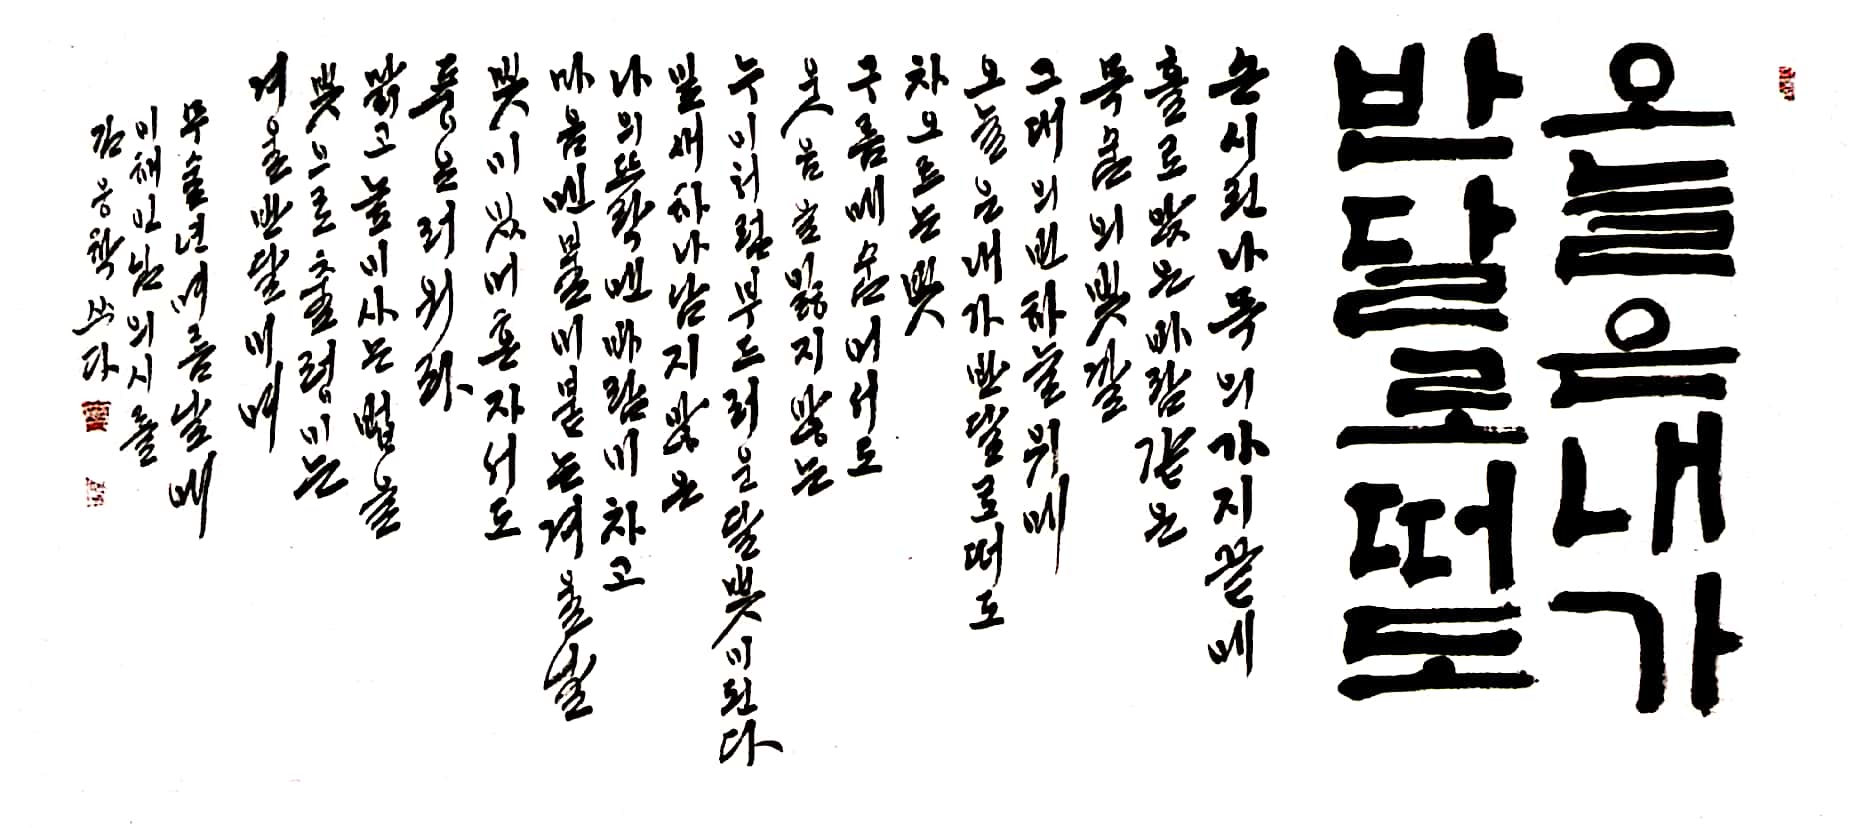 오늘은 내가
반달로 떠도
손 시린 나목의 가지 끝에
홀로 앉은 바람 같은
목숨의 빛깔
그대의 빈 하늘 위에
오늘은 내가 반달로 떠도
차오르는 빛
구름에 숨어서도
웃음을 잃지 않는
누이처럼 부드러운 달빛이 된다
잎새 하나 남지 않은
나의 뜨락엔 바람이 차고
마음엔 불이 붙는 겨울날
빛이 있어 혼자서도
풍요러워라
맑고 높이 사는 법을
빛으로 출렁이는
겨울 반달이여
무술년 여름날에
이해인님의 시를
김웅학 쓰다